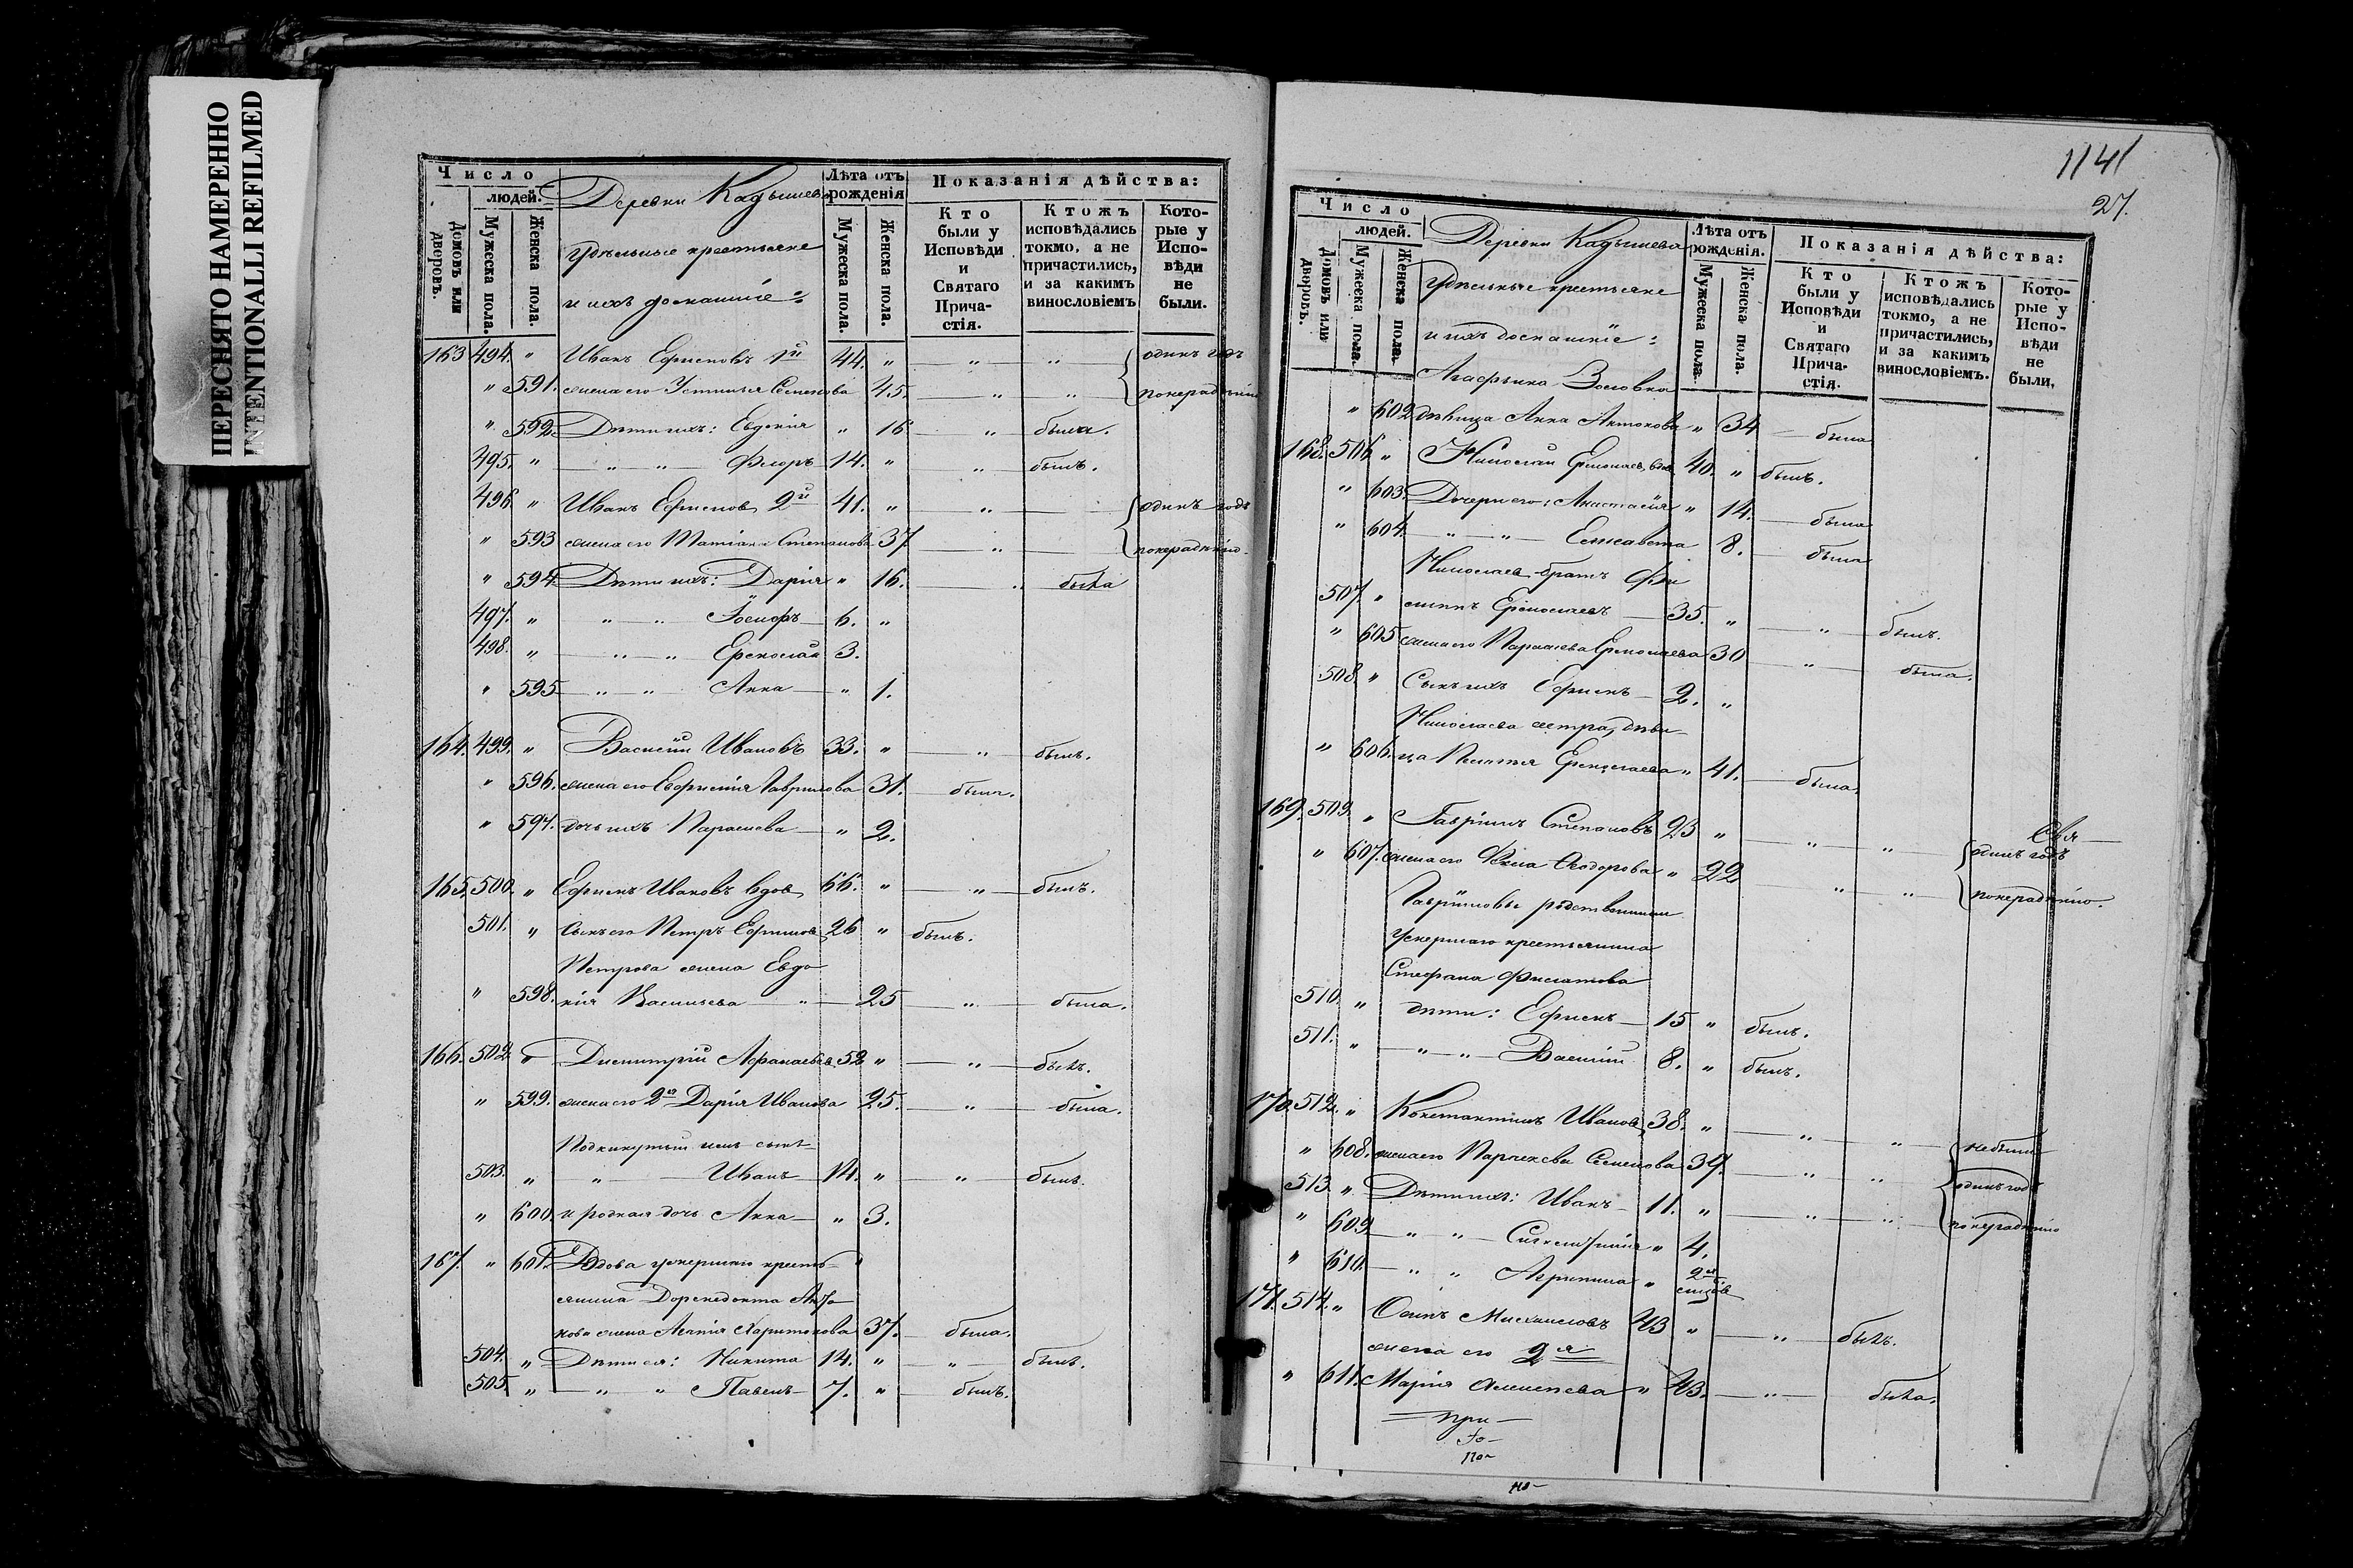 ПЕРЕСНЯТО НАМЕРЕННО
INTENTIONALLI REFILMED
Число
людей.
Домовъ или дворовъ.
Мужеска пола.
Женска пола.
Деревни Кадышева
удѣльные крестьяне
и ихъ домашніе:
Лѣта отъ рожденія
Мужеска пола.
Женска пола.
Показанія дѣйства:
Кто были у Исповѣди и Святаго Причастія.
Ктожъ исповѣдались токмо, а не причастились, и за какимъ винословіемъ
Которые у Исповѣди не были.
163 494. " Иванъ Ефимовъ 1й 44. " " " одинъ годъ
" 591. жена его Устинья Семенова 45. " " понерадѣнію
" 592. Дѣти ихъ: Евдокія " 16 " была.
495. " " " Флоръ 14. " " былъ.
496 " Иванъ Ефимовъ 2й 41. " " одинъ годъ
" 593 жена его Татіана Степанова 37 " понерадѣнію.
" 594. Дѣти ихъ: Дарія " 16. " была
497. " " " Іосифъ 6. "
498. " " " Ермолай 3.
" 595 " " Анна " 1.
164. 499. " Василій Ивановъ 33. " " былъ.
" 596. жена его Евфимія Гаврилова 31. была.
" 597. дочь ихъ Параскева " 2.
165. 500. " Ефимъ Ивановъ вдов 66. " " былъ.
501. " Сынъ его Петръ Ефимовъ 26 " былъ.
Петрова жена Евдо
" 598. кія Васильева " 25 " была.
166. 502. " Димитрій Афанасьевъ 52 " " былъ.
" 599. жена его 2я Дарія Иванова 25. " была.
Подкинутый имъ сынъ
503. " " Иванъ " " былъ.
" 600. и родная дочь Анна " 3.
167. " 601. Вдова умершаго кресть-
янина
нова жена Агапія Харитонова 37. была.
504. " Дѣти ея: Никита 14. " " былъ.
505. " " " Павелъ 7. " былъ.
1141
27.
Число
людей.
Домовъ или дворовъ.
Мужеска пола.
Женска пола.
Деревни Кадышева
Удѣльные крестьяне
и ихъ домашніе:
Лѣта отъ рожденія.
Мужеска пола.
Женска пола.
Показанія дѣйства:
Кто были у Исповѣди и Святаго Причастія.
Ктожъ исповѣдались токмо, а не причастились, и за какимъ винословіемъ.
Которые у Исповѣди не были,
Агафьина Золовка
" 602. дѣвица Анна Антонова " 34 была
168. 506. " Николай Ермолаевъ, вдов 40. " былъ.
" 603. Дочери его: Анастасія " 14. была
" 604. " " Елисавета 8. была
Николаевъ братъ Фи
507. " липпъ Ермолаевъ 35. " " былъ.
" 605 жена его Параскева Ермолаева 30 " была.
508. " Сынъ ихъ Ефимъ 2. "
Николаева сестра, дѣви
" 606. ца Пелагея Ермолаева " 41. была.
169. 509. " Гавріилъ Степановъ 23 " " "
одинъ годъ
" 607. жена его Ѳекла Ѳеодорова " 22 " " понерадѣнію.
Гавріиловы родственники
умершаго крестьянина
Стефана Филатова
510. " дѣти: Ефимъ 15 " былъ.
511. " " " Василій 8. " былъ.
170. 512. " Константинъ Ивановъ 38. " " " небыли
" 608. жена его Параскева Семенова 37. " " одинъ годъ
513. " Дѣти ихъ: Иванъ 11. " " " понерадѣнію
" 609. " " 4.
" 610. " " Агрипина " 2хъ
171. 514. " Осипъ Михаиловъ 43 " " былъ.
жена его 2я
" 611. Марія Алексѣева " 43. " была.
при-
го-
по-